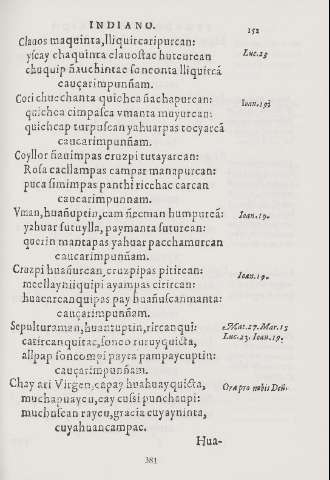 INDIANO. 152
Clauos maquinta, lliquircaripurcan:
yscay chaquinta clauostac huтcurcan Luc.23
chuquip ñauchintac sonconta lliquircã
cauçarimpunñam.
Cori chucchanta quichca ñachapurcan: Ioan.19
quichca cimpasca vmanta muyurcan:
quichcap turpuscan yahuarpas tocyarcã
caucarimpunñam.
Coyllor ñauimpas cruzpi tutayarcan:
Rosa caellampas campar manapurcan:
puca simimpas panchi ricchac carcan
caucarimpunnam.
Vman, huañuptin, cam ñecman humpurcã: Ioan.19.
yahuar sutuylla, paymanta suturcan:
querin mantapas yahuar pacchamurcan
caucarimpunñam.
Cruzpi huañurcan, cruzpipas pitircan: Ioan.19.
mcellayñiiquipi ayampas cirircan:
huacarcanquipas pay huañuscanmanta:
cauçarimpunñam.
Sepulturaman, huañuptin, rircanqui: Mat.27.Mar.15
catircanquitac, sonco rucuyquicta, Luc.23.Ioan.19.
allpap soncompi payta pampaycuptin:
cauçarimpunñam.
Chay ari Virgen, çapay huahuayquicta, Ora pro nobis Deũ.
muchapuaycu, cay cussi punchaupi:
muchuscan raycu, gracia cuyayninta,
cuyahuancampac.
Hua-
383